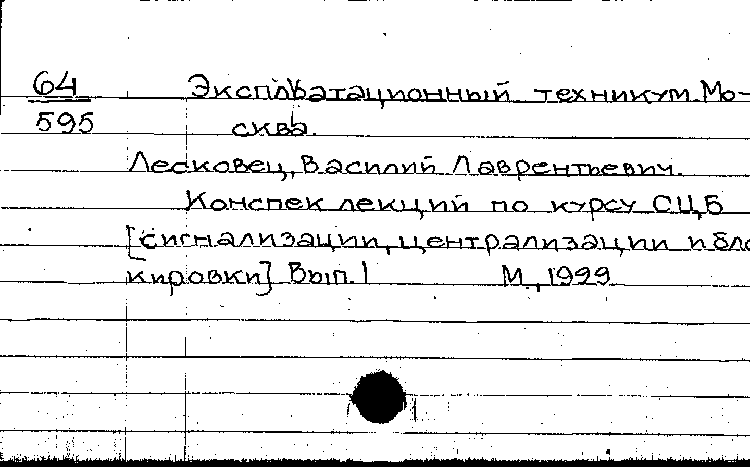 64
595
Эксплоатационный техникум. Мо-
сква.
Лесковец, Василий Лаврентьевич.
Конспек лекций по курсу СЦБ
[сигнализации, централизации и бло
кировки] Вып. 1 М., 1999